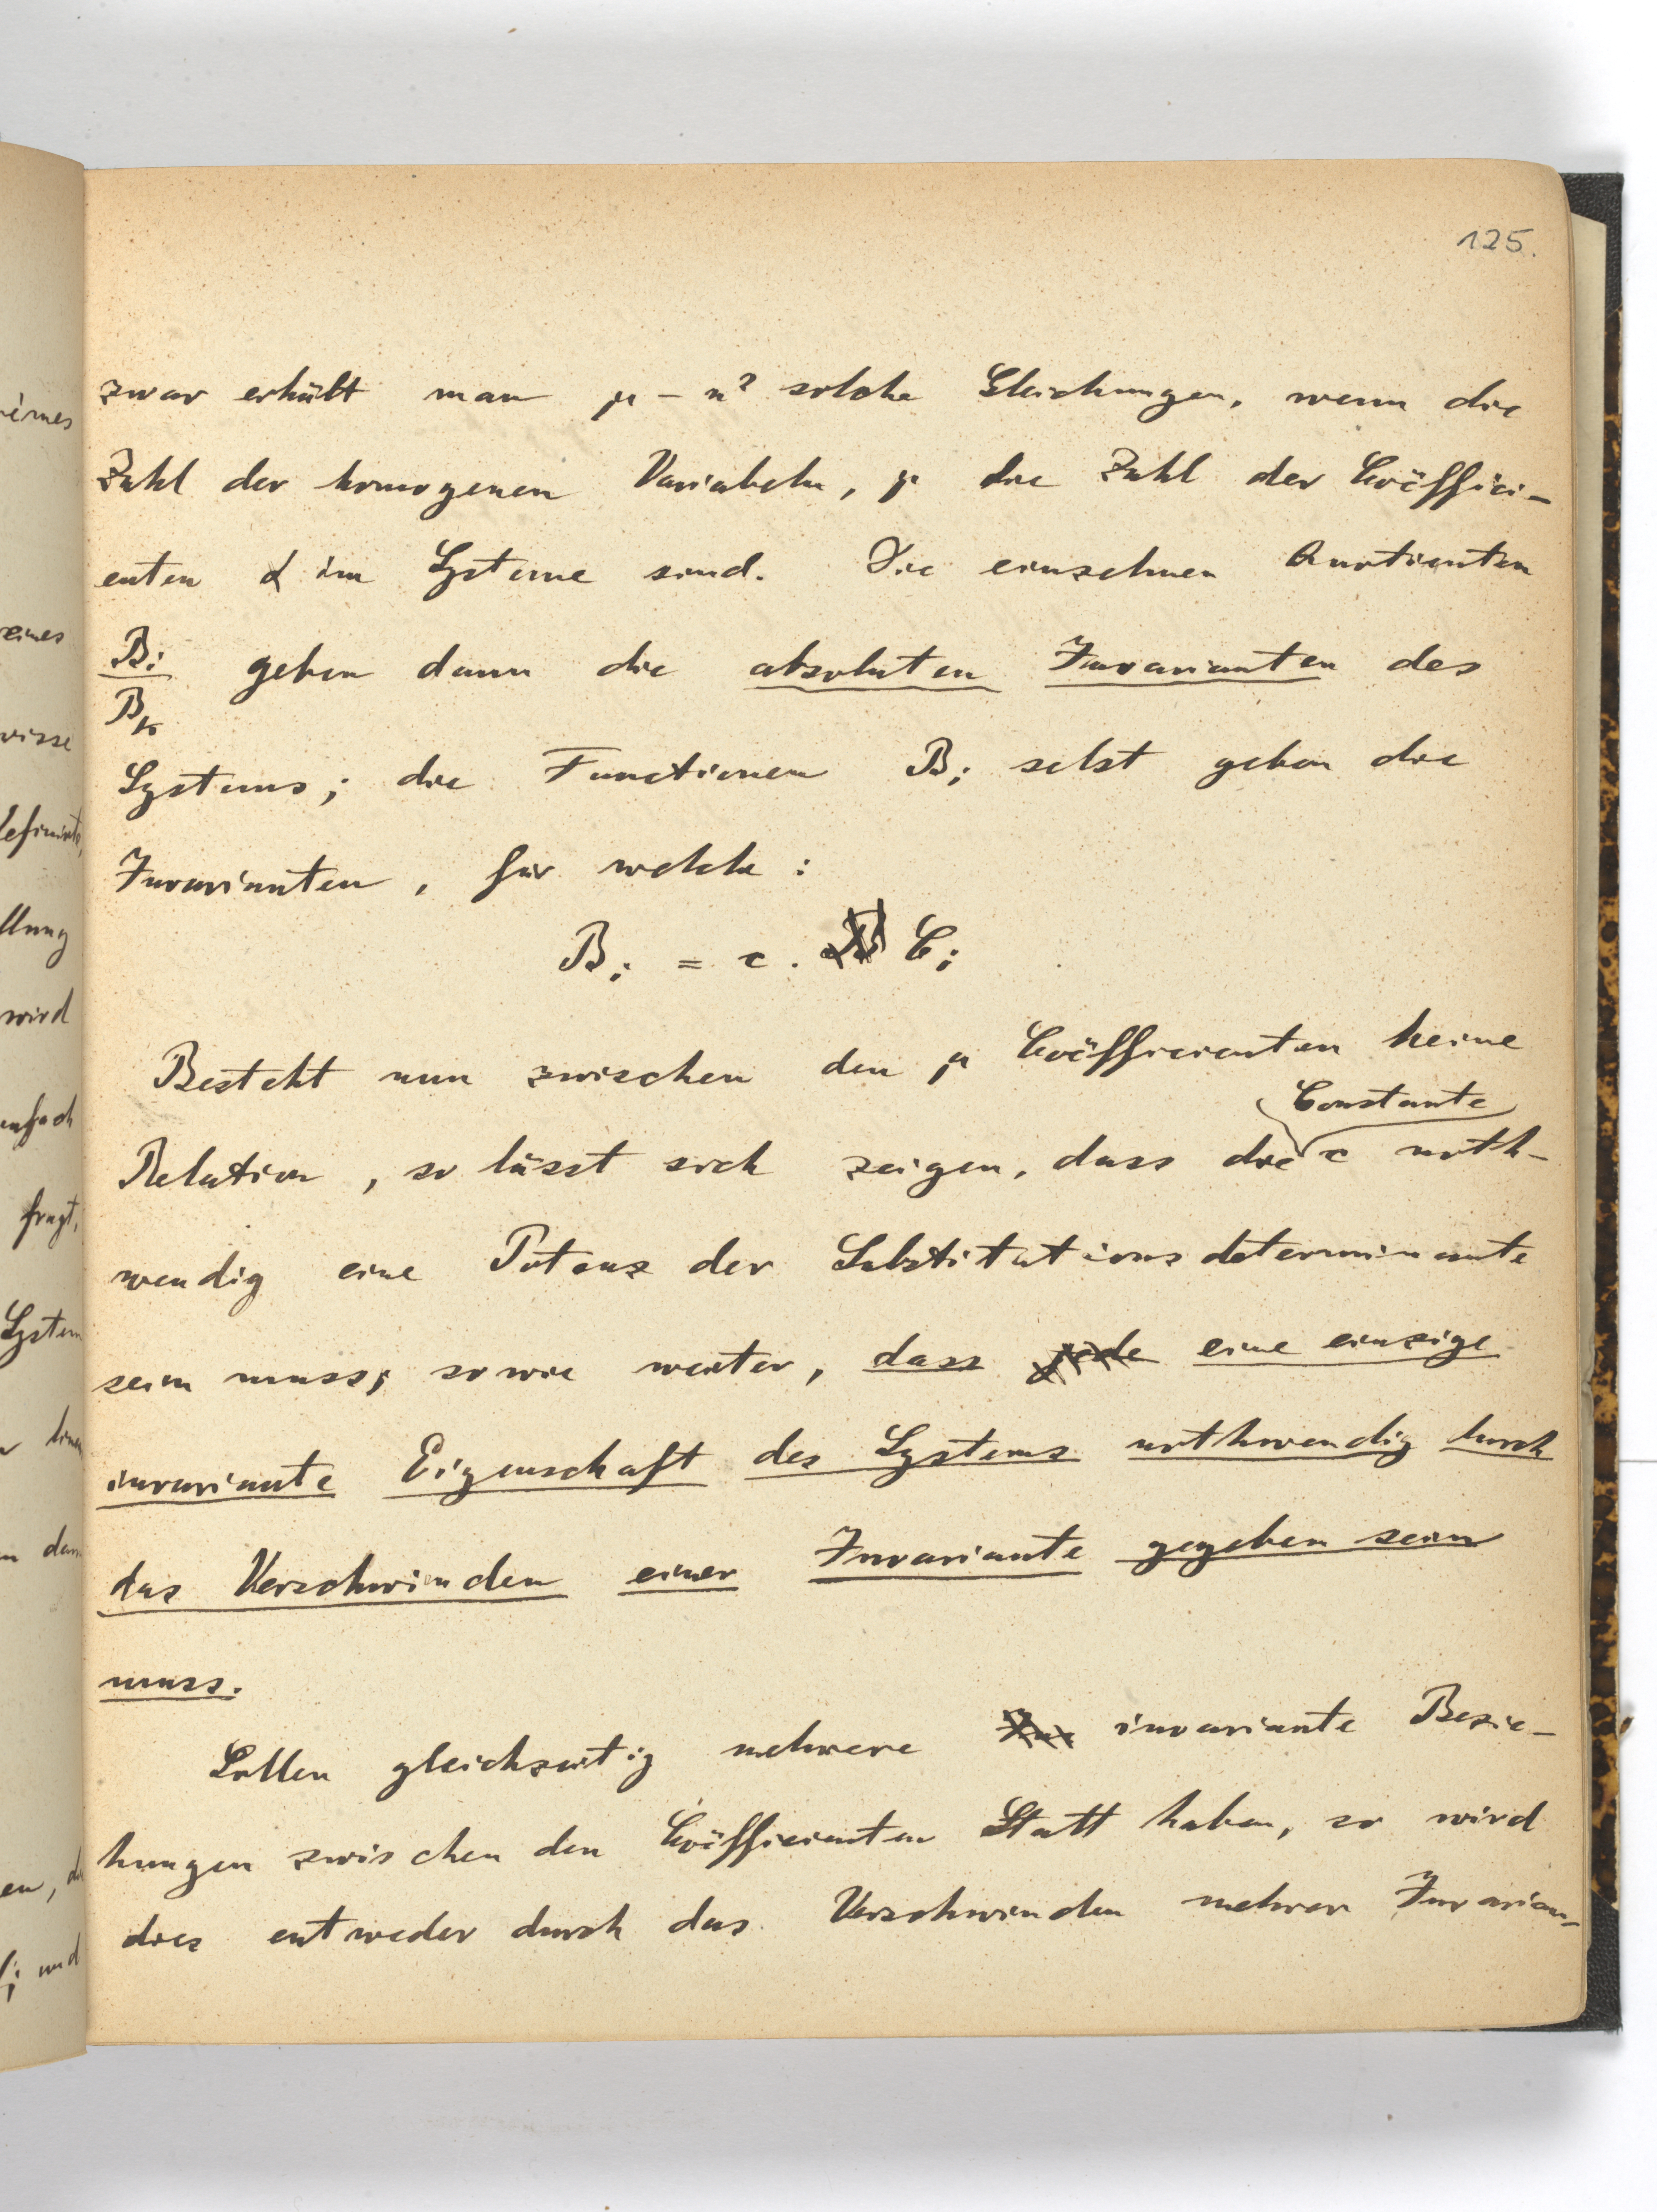 125.
zwar erhält man μ - n² solche Gleichungen, wenn die
Zahl der homogenen Variabeln, μ die Zahl der Coëffici-
enten α im Systeme sind. Die einzelnen Quotienten
B_i/B_k geben dann die absoluten Invarianten des
Systems; die Functionen B_i selbst geben die
Invarianten, für welche:
B_i = c . C_i
Besteht nun zwischen den μ Coëfficienten keine
Constante
Relation, so lässt sich zeigen, dass die c noth-
wendig eine Potenz der Substitutionsdeterminante
sein muss; sowie weiter, dass jede eine einzige
invariante Eigenschaft des Systems nothwendig durch
das Verschwinden einer Invariante gegeben sein
muss.
Sollen gleichzeitig mehrere invariante Bezie-
hungen zwischen den Coëfficienten Statt haben, so wird
dies entweder durch das Verschwinden mehrer Invarian-
eines
wisse
llung
wird
fragt,
System
und